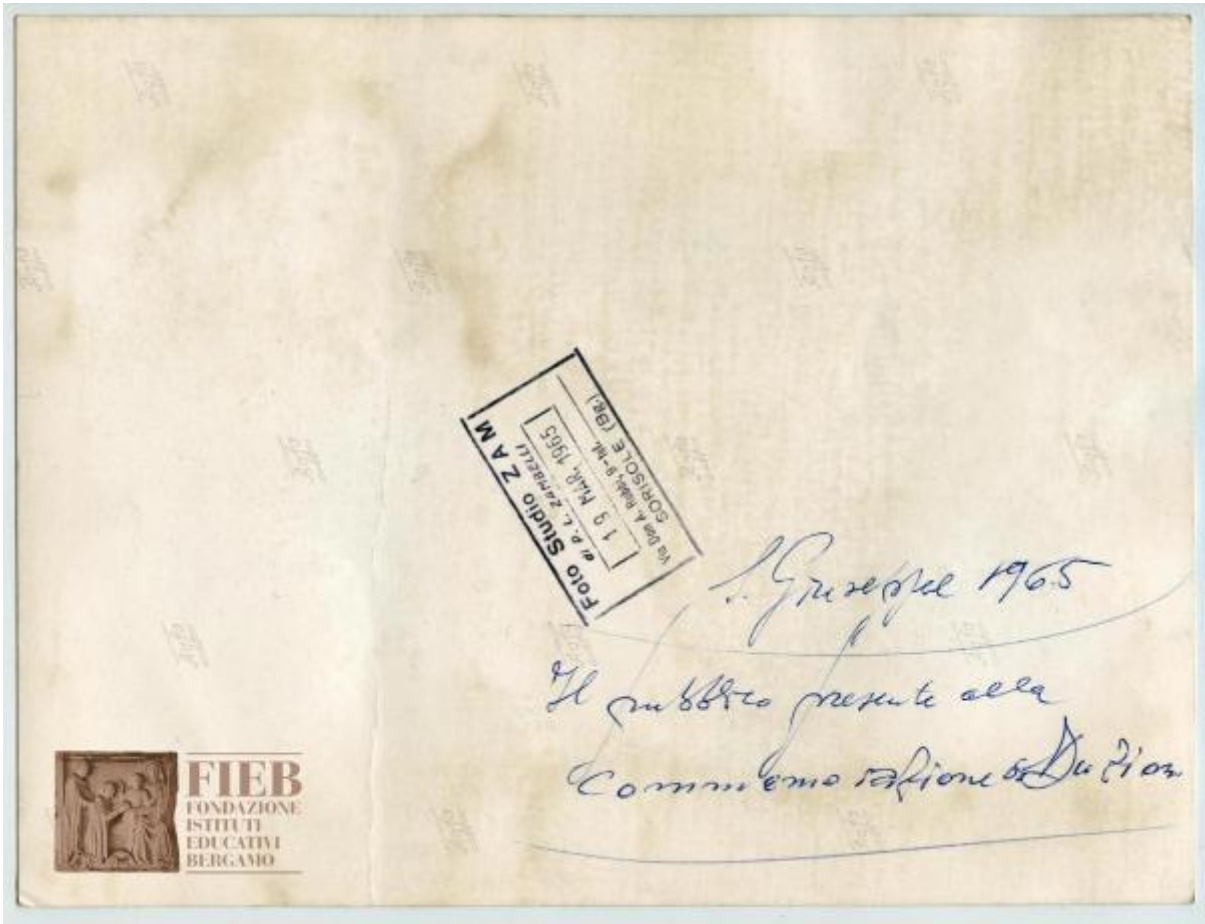 Foto Studio ZAM
di P. L. ZAMBELLI
19 MAR. 1965
Via Don A. 9 - tel.
SORISOLE (BG.)
S. Giuseppe 1965
Il pubblico presente alla
Commemorazione
FIEB
FONDAZIONE
ISTITUTI
EDUCATIVI
BERGAMO